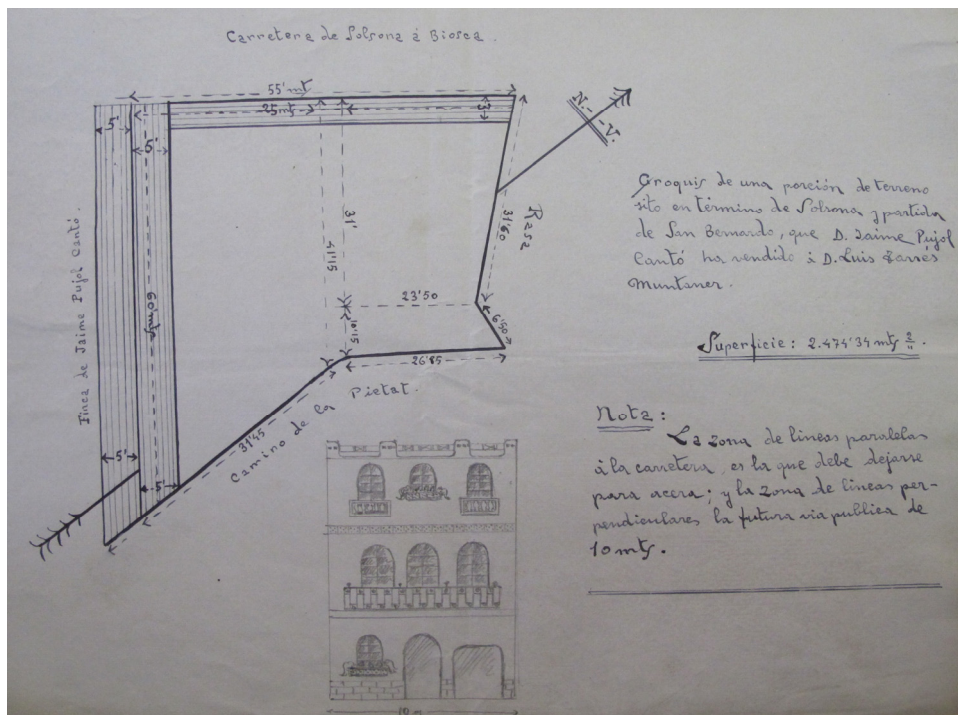 Carretera de Solsona á Biosca.
55' mts
25 mts
3'
5'
5'
N.- -V.
31'
41'15
Rasa
31'60
Finca de Jaime Pujol Cantó.
60' mts
23'50
10'15
6'50
26'85
31'45
Camino de la Pietat.
5'
5'
Croquis de una porción de terreno
sito en término de Solsona y partida
de San Bernardo, que D. Jaime Pujol
Cantó ha vendido á D. Luis
Muntaner.
Superficie: 2.474'34 mts 2.
Nota:
La zona de lineas paralelas
á la carretera, es la que debe dejarse
para acera; y la zona de lineas per-
pendiculares la futura via publica de
10 mts.
10 m